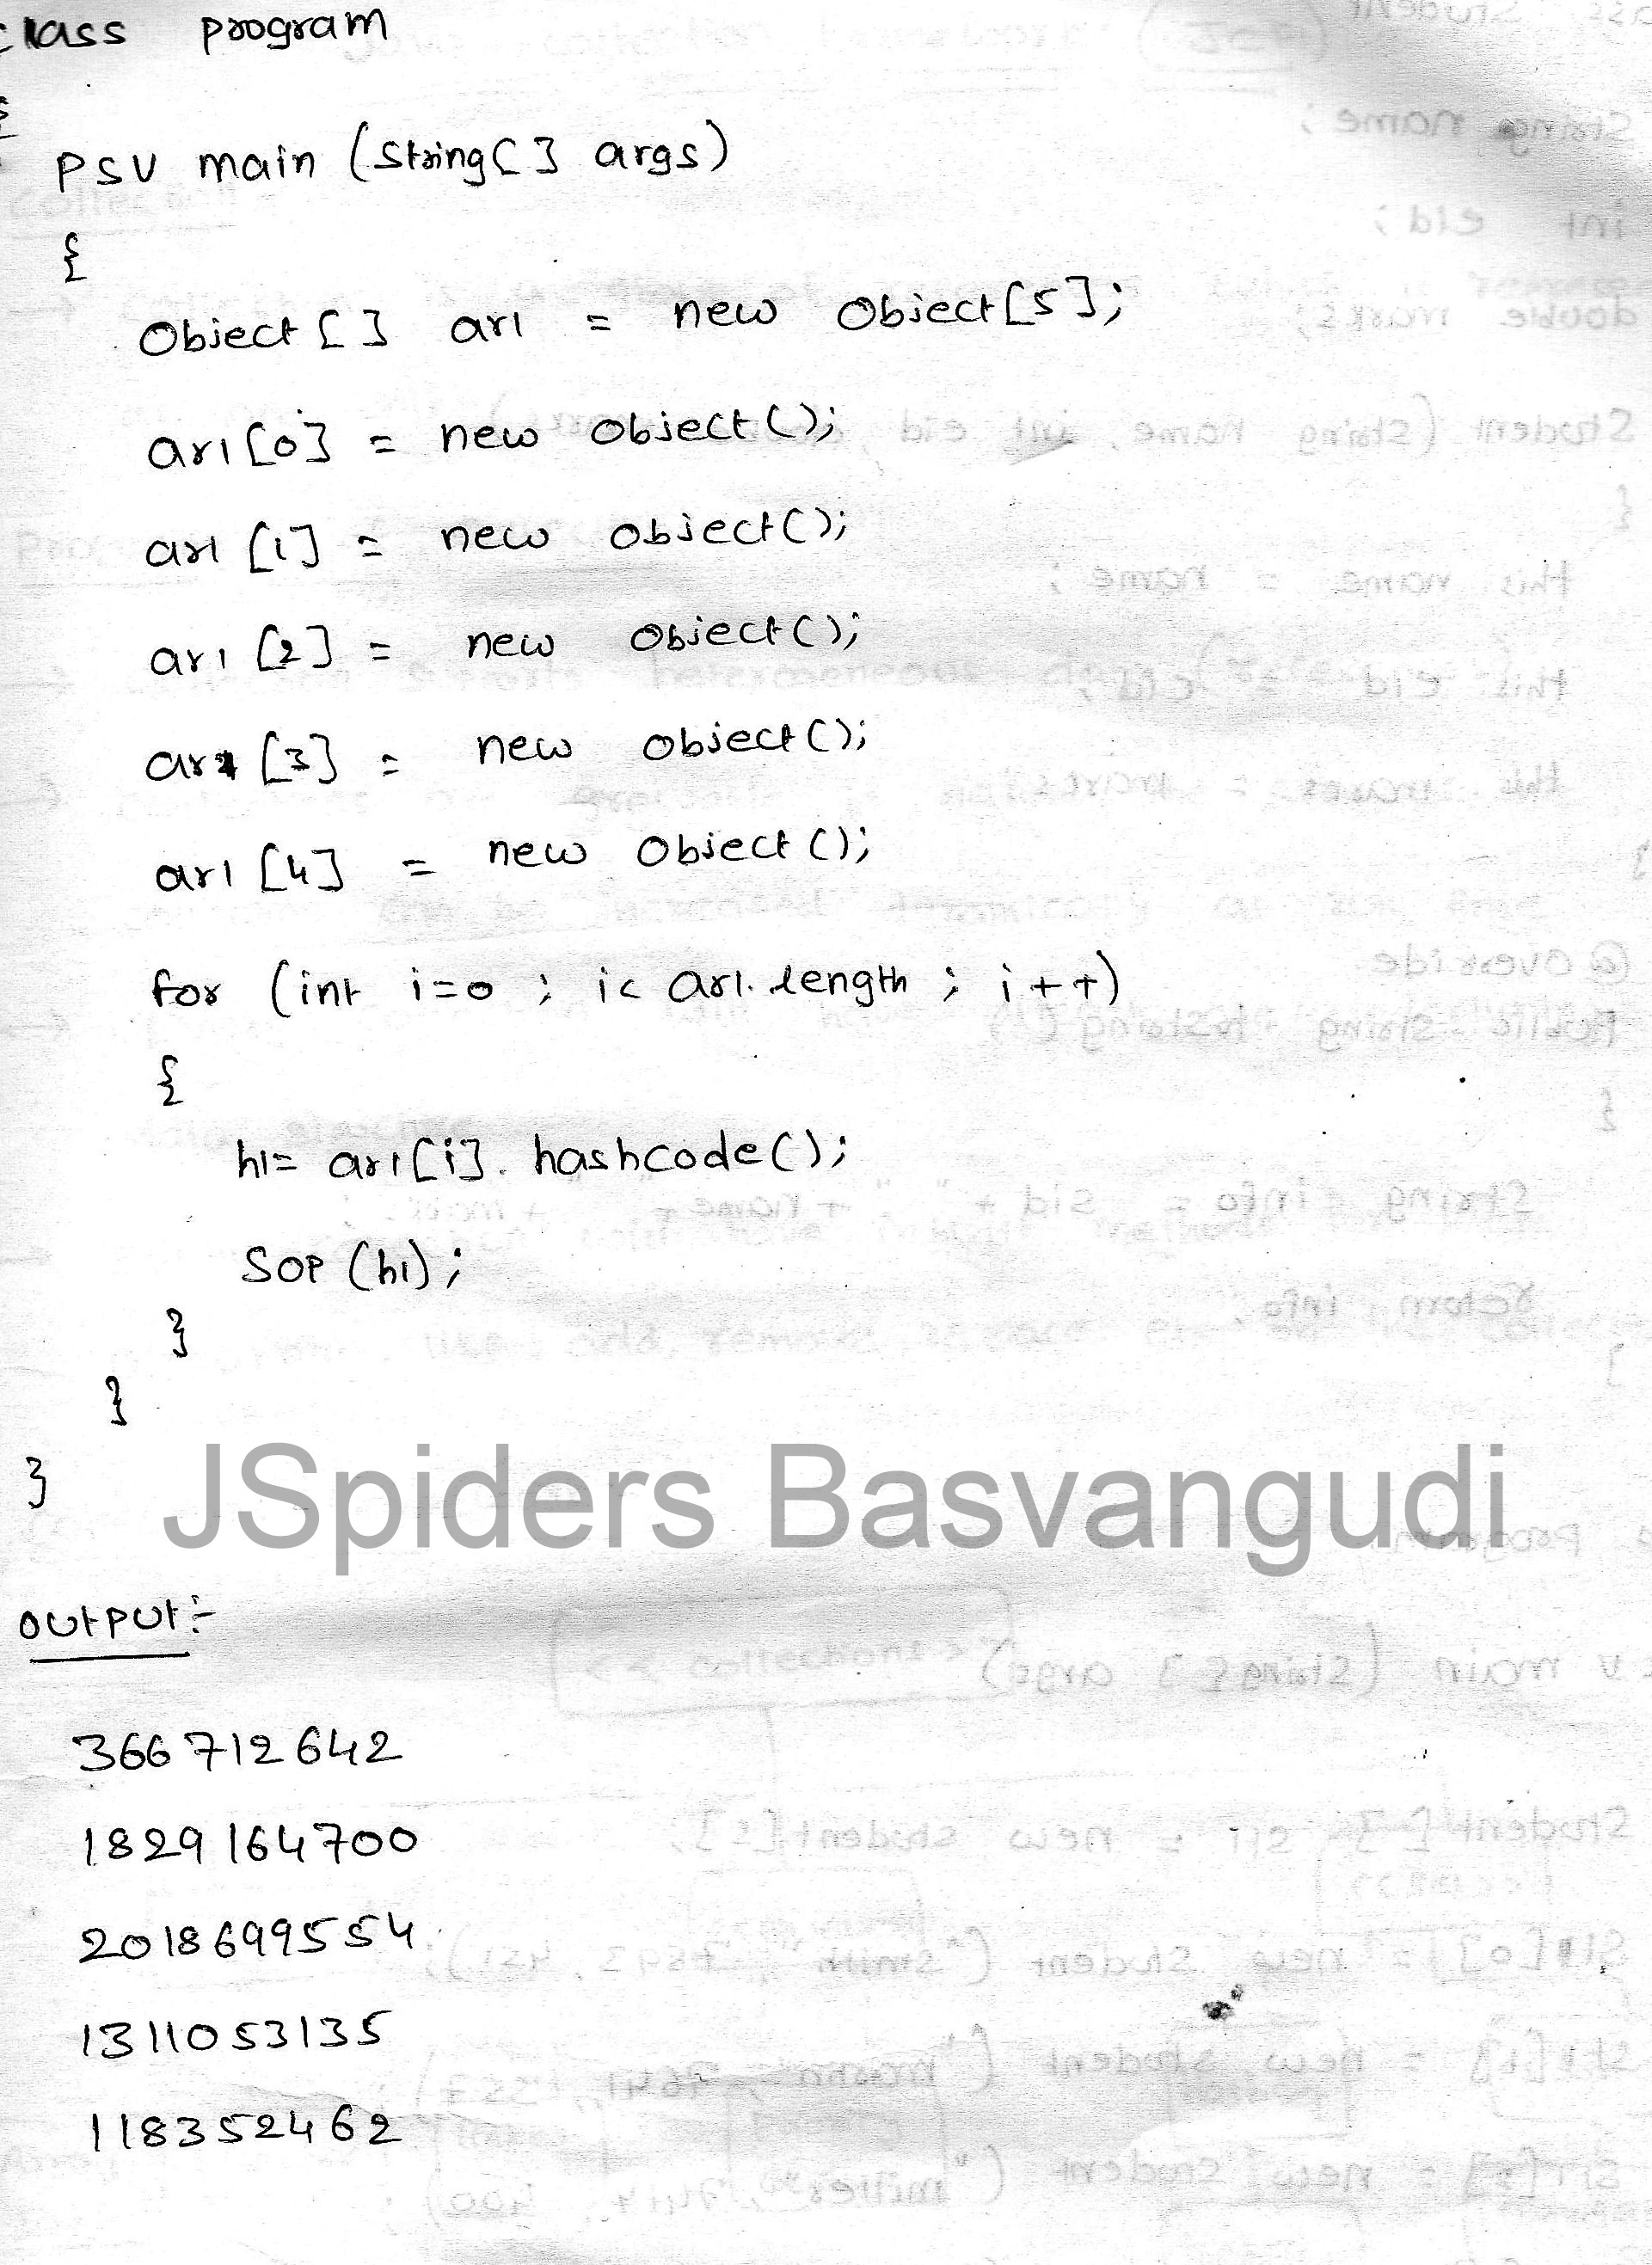 class program
{
psv main (string[] args)
{
Object [] ar1 = new Object[5];
ar1[0] = new object();
ar1 [1] = new object();
ar1 [2] = new Object();
ar1 [3] = new object();
ar1 [4] = new Object();
for (int i=0 ; i< ar1.length ; i++)
{
h1= ar1[i]. hashcode();
SOP (h1);
}
}
}
JSpiders Basvangudi
output:-
366712642
1829164700
2018699554
1311053135
118352462